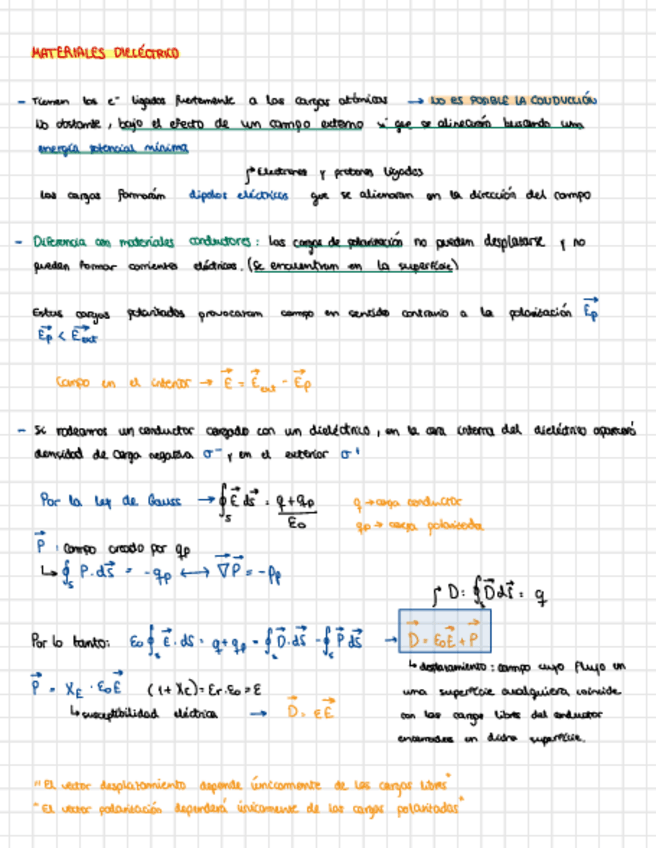 MATERIALES DIELÉCTRICO
- Tienen los e⁻ ligados fuertemente a las cargas atómicas → NO ES POSIBLE LA CONDUCCIÓN
No obstante, bajo el efecto de un campo externo si que se alinearán buscando una
energía potencial mínima
Electrones y protones ligados
Las cargas formarán dipolos eléctricos que se alienaran en la dirección del campo
- Diferencia con materiales conductores: las cargas de polarización no pueden desplazarse y no
pueden formar corrientes eléctricas. (Se encuentran en la superficie)
Estas cargas polarizadas provocaran campo en sentido contrario a la polarización E⃗p
E⃗p < E⃗ext
Campo en el interior → E⃗ = E⃗ext - E⃗p
- Si rodeamos un conductor cargado con un dieléctrico, en la cara interna del dieléctrico aparecerá
densidad de carga negativa σ⁻ y en el exterior σ⁺
Por la ley de Gauss → ∮s E⃗ ds⃗ = (q+qp)/ε₀
q → carga conductor
qp → carga polarizada
P⃗ : campo creado por qp
↳ ∮s P·ds⃗ = -qp ↔ ∇⃗P⃗ = -ρp
D: ∮s D⃗ds⃗ = q
Por lo tanto: ε₀∮s E⃗·ds = q+qp = ∮s D⃗·ds - ∮s P⃗ ds → D⃗ = ε₀E⃗ + P⃗
↳ desplazamiento: campo cuyo flujo en
una superficie cualquiera, coincide
con las cargas libres del conductor
encerradas en dicha superficie.
P⃗ = χE · ε₀E⃗ (1+χE) = εr·ε₀ = ε
↳ susceptibilidad eléctrica → D⃗ = εE⃗
"El vector desplazamiento depende únicamente de las cargas libres"
"El vector polarización dependerá únicamente de las cargas polarizadas"